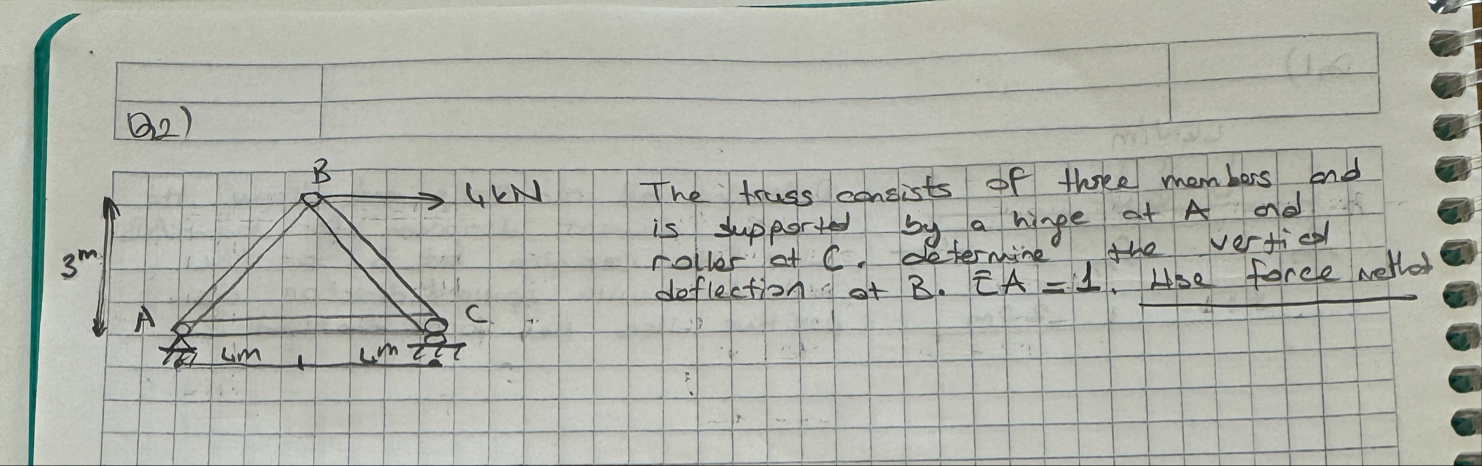 Q2)
B
4 kN
3m
A
C
4m
4m
The truss consists of three members and
is supported by a hinge at A and
roller at C. determine the vertical
deflection at B. EA = 1. Use force method